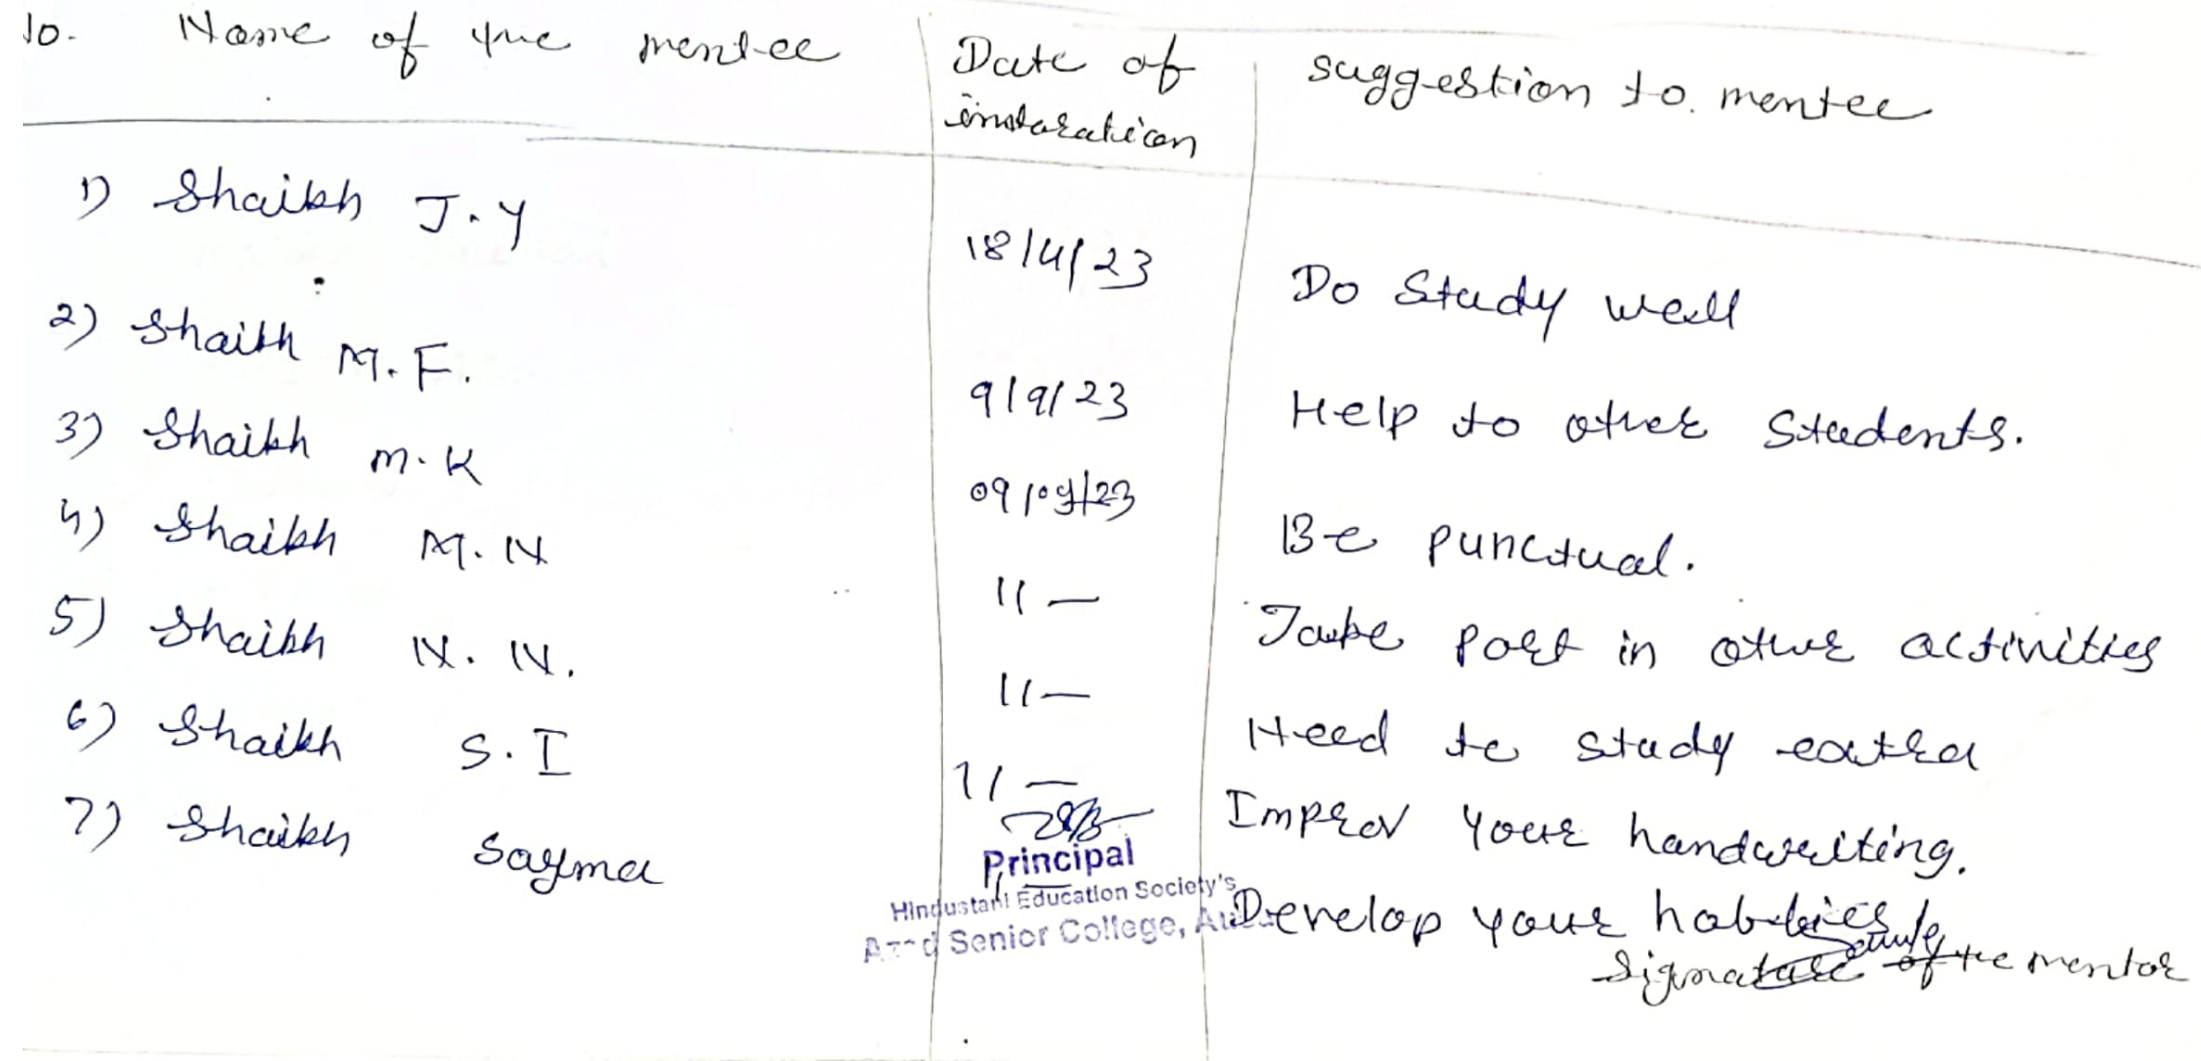 No. Name of the mentee Date of suggestion to mentee
1) Shaikh J.Y 18/4/23 Do Study well
2) Shaikh M.F. 9/9/23 Help to other Students.
3) Shaikh M.K 09/09/23 Be punctual.
4) Shaikh M.N 11 — Take Part in other activities
5) Shaikh N.N. 11 — Need to study extra
6) Shaikh S.I 11 — Improv your handwriting.
7) Shaikh Sayma 11 — Develop your hobbies
Principal
Hindustani Education Society's
Azad Senior College,
Signature of the mentor